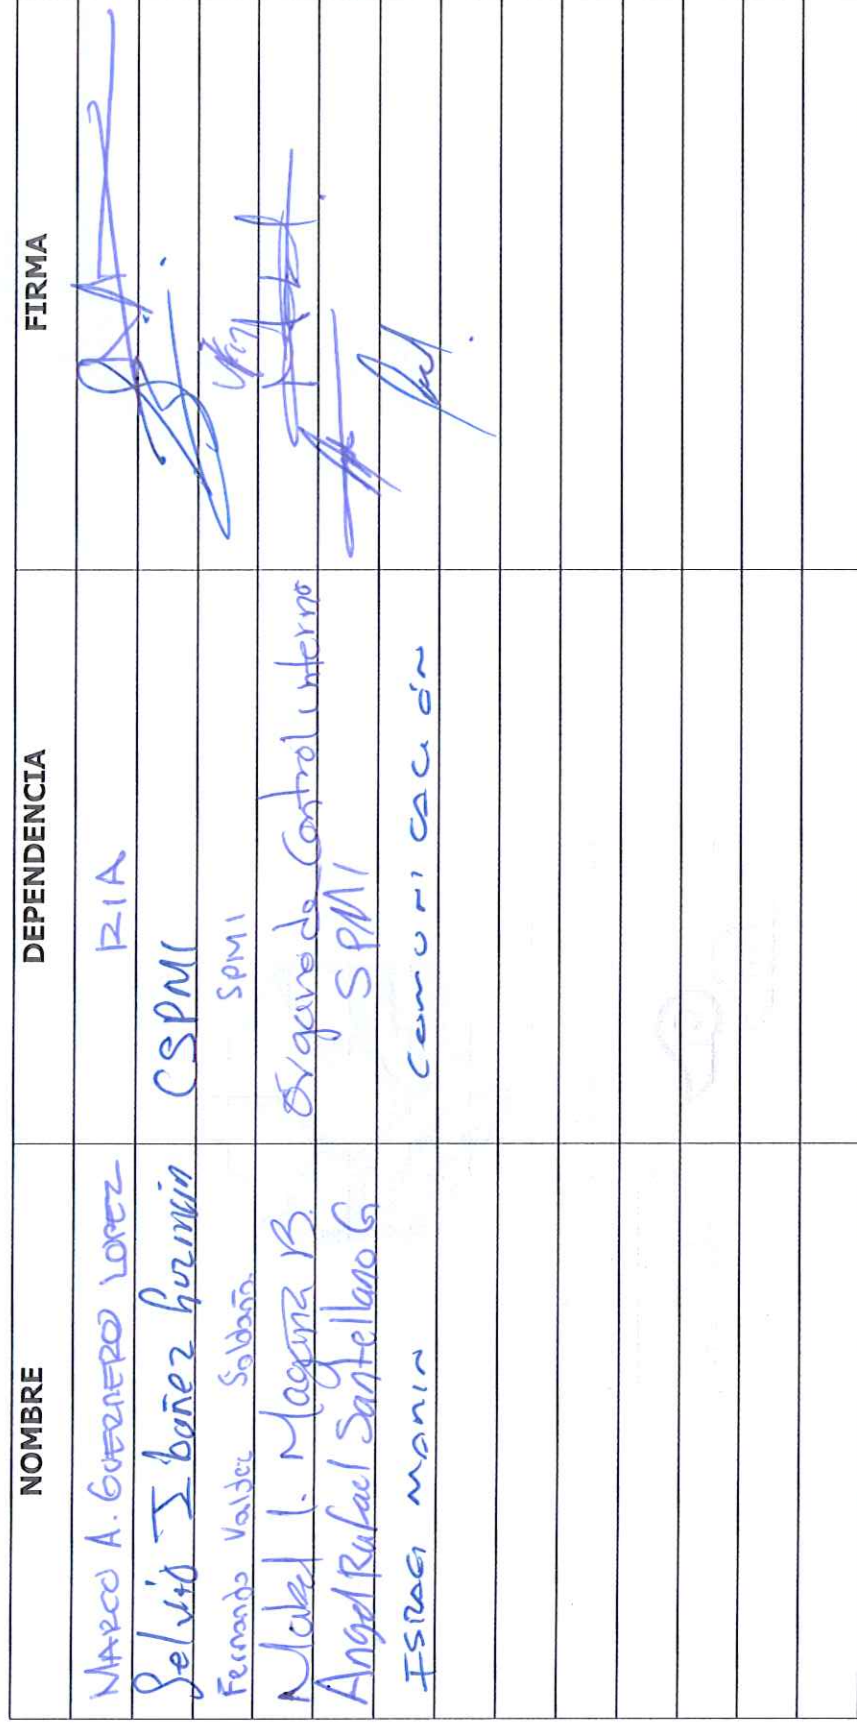 NOMBRE DEPENDENCIA FIRMA
MARCO A. GUERRERO LOPEZ RIA
Selvio Ibañez Guzmán CSPMI
Fernando Valdez Saldaña SPMI
Mabel I. Magaña B. Órgano de Control interno
Angel Rafael Santellano G SPMI
ISRAEL MARIN COMUNICACIÓN